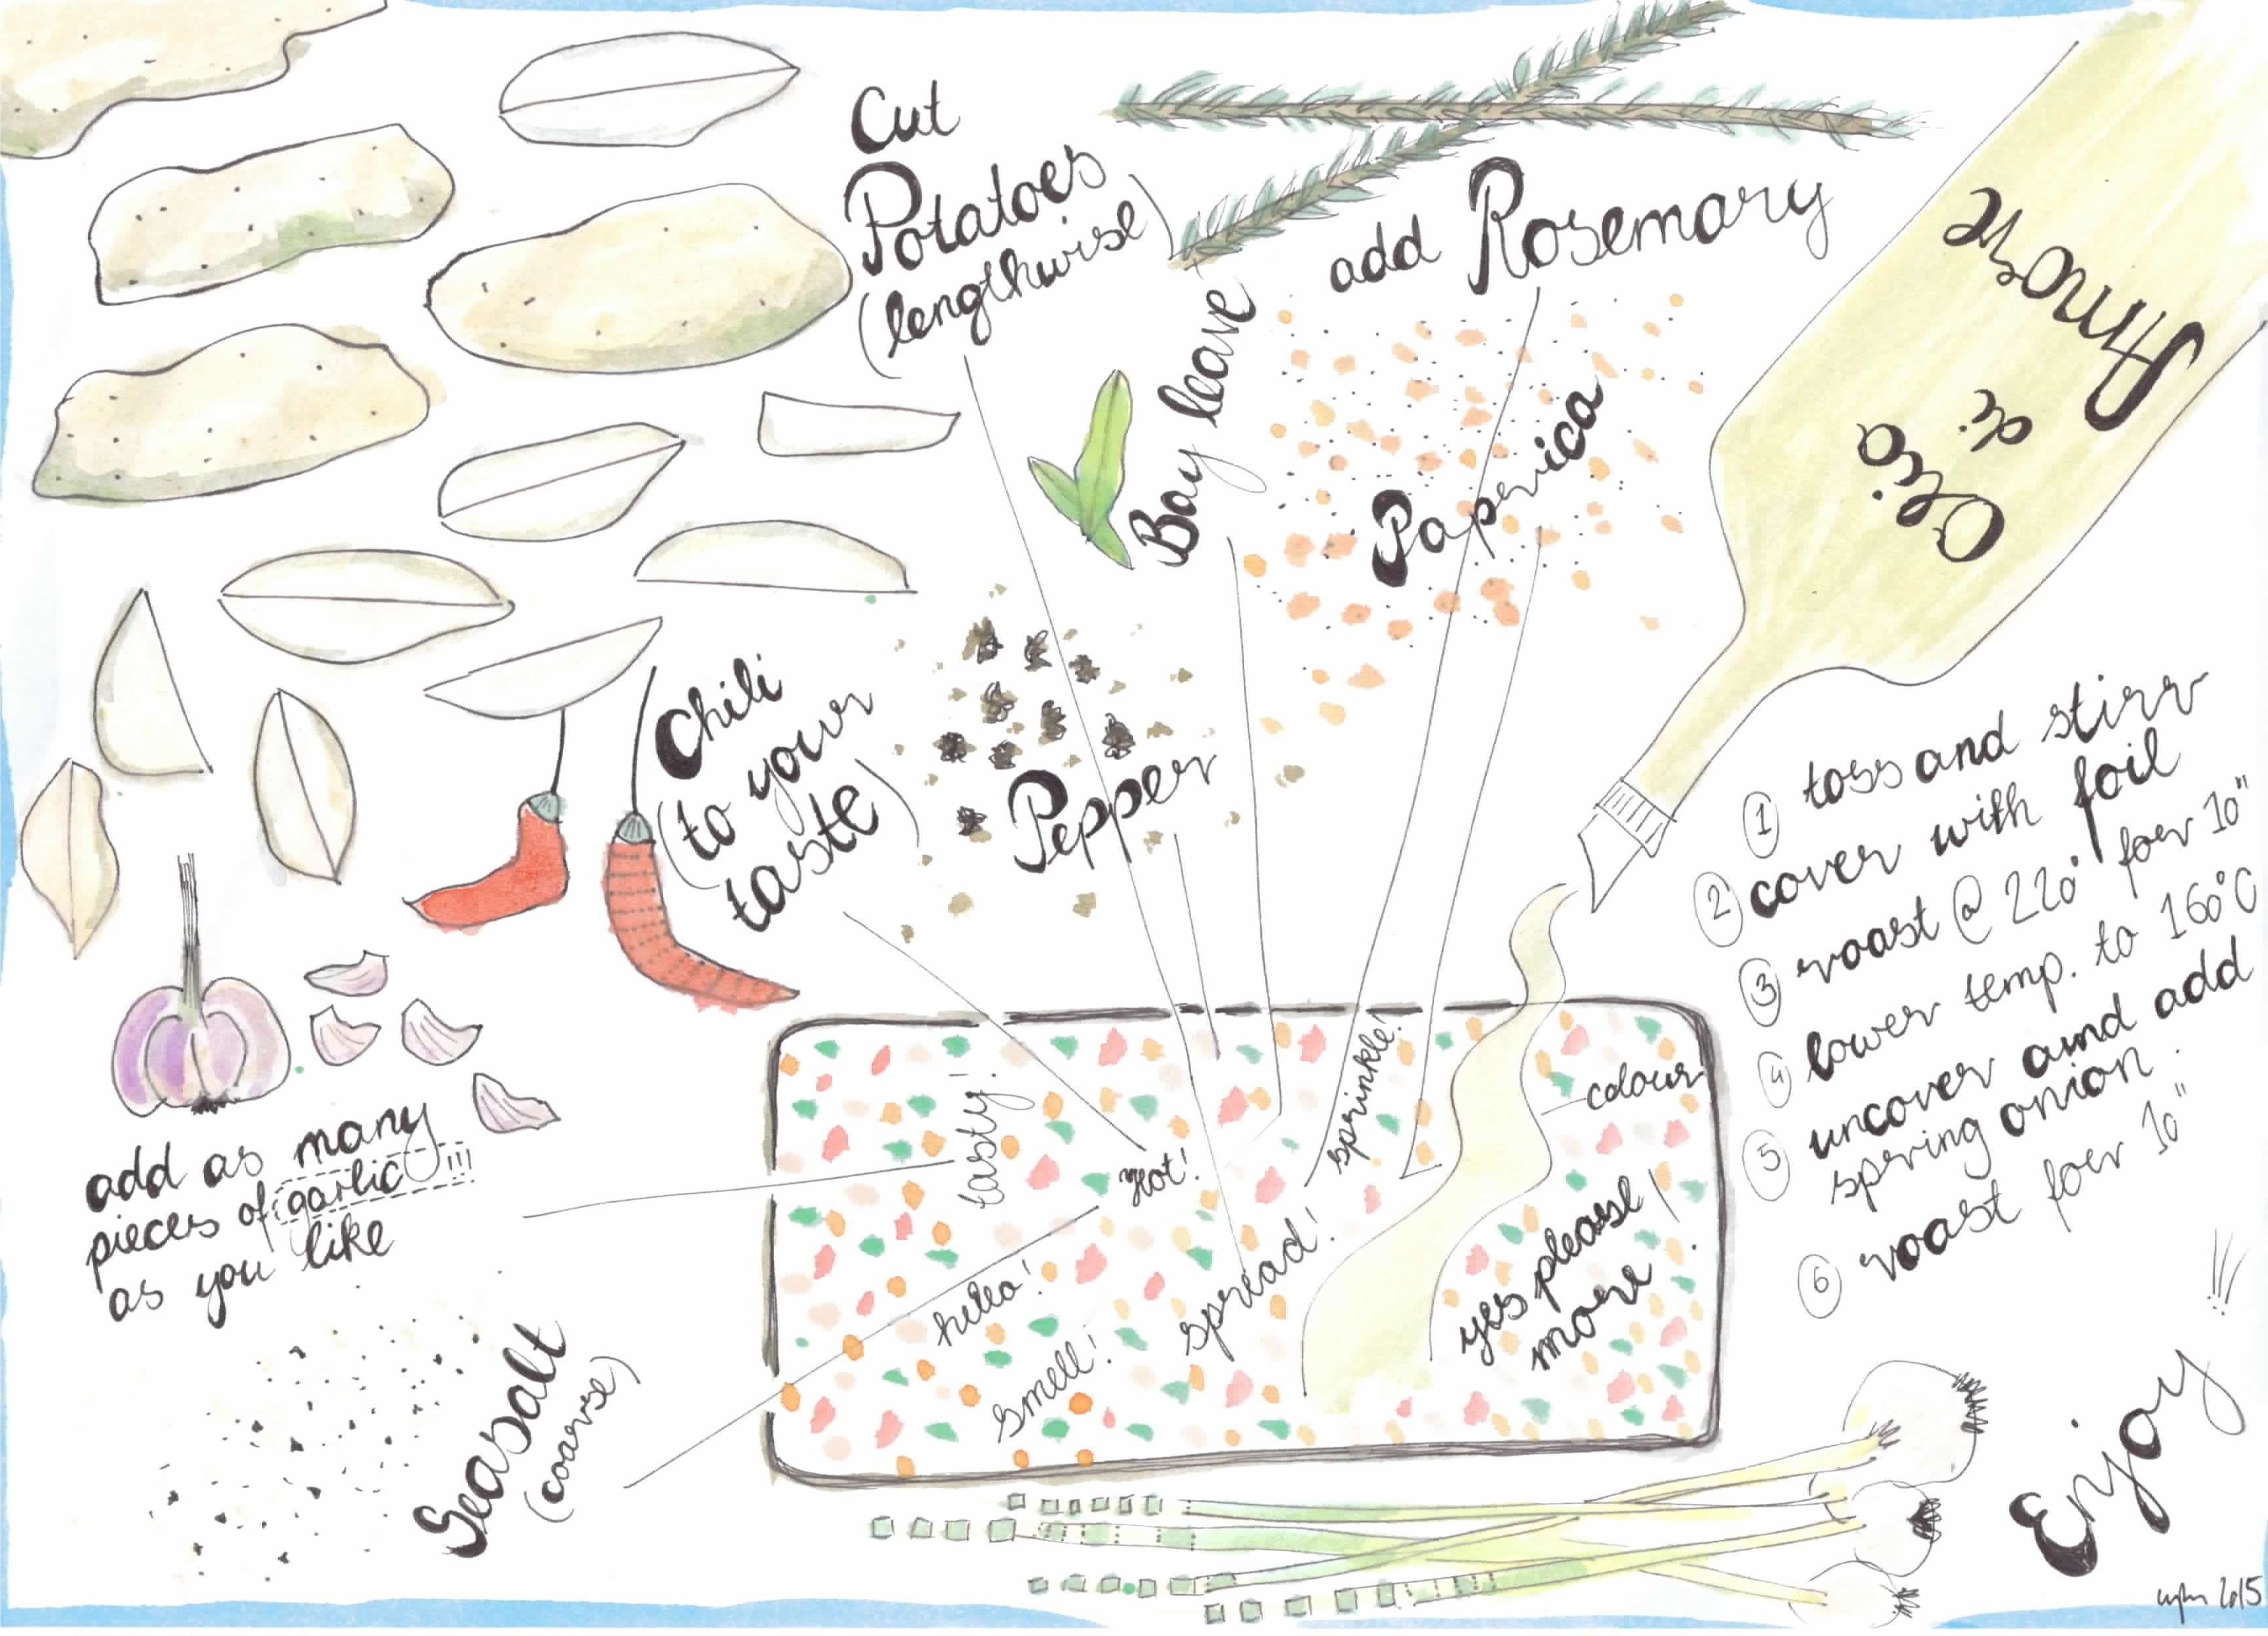 Cut
Potatoes
(lengthwise)
add Rosemary
Bay leave
Paprica
Olio
di
Amore
Chili
(to your
taste)
Pepper
add as many
pieces of garlic!!!
as you like
Seasalt
(coarse)
tasty!
Hot!
sprinkle!
colour
hello!
smell!
spread!
yes please
more!
1 toss and stirr
2 cover with foil
3 roast @ 220° for 10"
4 lower temp. to 160°C
5 uncover and add
spring onion.
6 roast for 10"
Enjoy!!!
2015